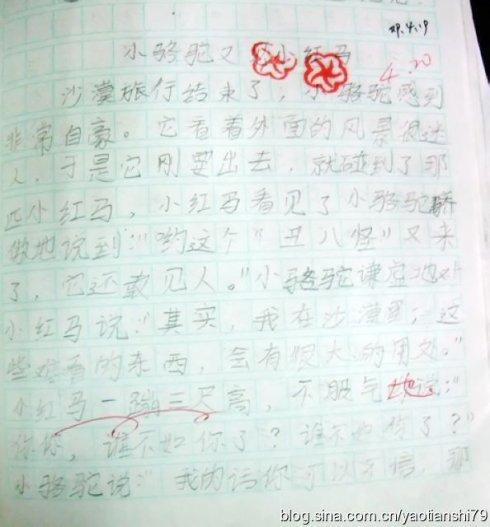 09.4.19
小骆驼又 小红马
4.20
沙漠旅行结束了，小骆驼感到
非常自豪。它看着外面的风景
人，于是它刚要出去，就碰到了那
匹小红马，小红马看见了小骆驼骄
傲地说到："哟这个"丑八怪"又来
了，它还敢见人。"小骆驼谦虚地对
小红马说："其实，我在沙漠里，这
些难看的东西，会有很大的用处。"
小红马一蹦三尺高，不服气地说："
你你，谁不如你了？谁不如你了？"
小骆驼说："我的话你可以不信，那
blog.sina.com.cn/yaotianshi79